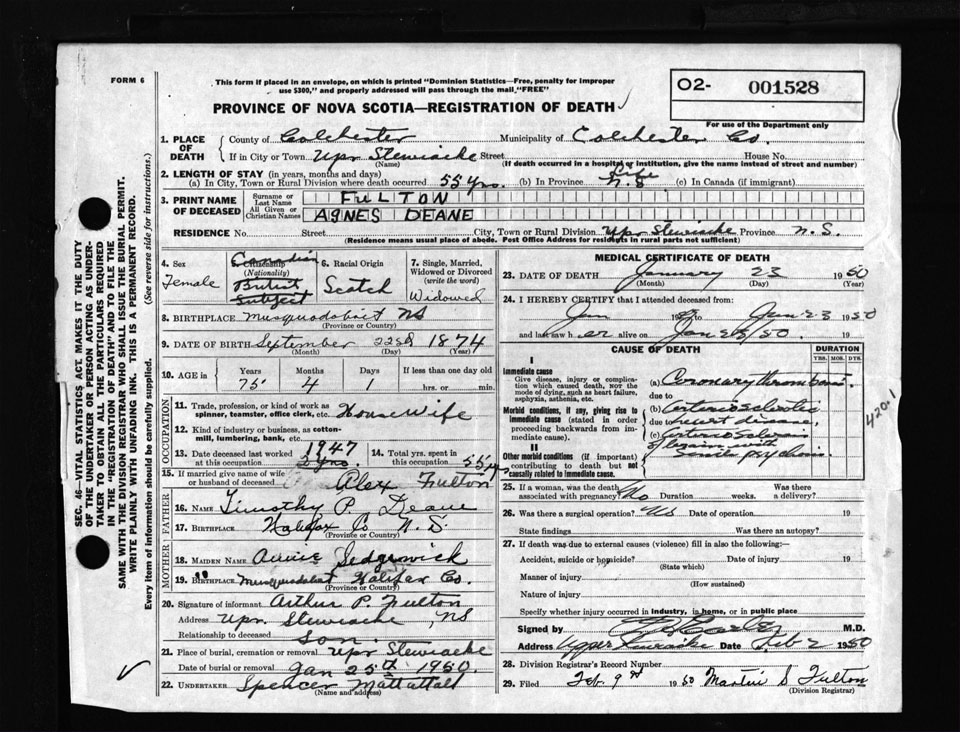 FORM 6
This form if placed in an envelope, on which is printed "Dominion Statistics—Free, penalty for improper
use $300," and properly addressed will pass through the mail "FREE"
O2- 001528
For use of the Department only
PROVINCE OF NOVA SCOTIA—REGISTRATION OF DEATH
1. PLACE OF DEATH
County of Colchester Municipality of Colchester Co.
If in City or Town Upr Stewiacke Street House No.
(Name) (If death occurred in a hospital or institution, give the name instead of street and number)
2. LENGTH OF STAY (in years, months and days)
(a) In City, Town or Rural Division where death occurred 55 yrs. (b) In Province Life N.S (c) In Canada (if immigrant)
3. PRINT NAME OF DECEASED
Surname or Last Name FULTON
All Given or Christian Names AGNES DEANE
RESIDENCE No. Street City, Town or Rural Division Upr Stewiacke Province N.S.
(Residence means usual place of abode. Post Office Address for residents in rural parts not sufficient)
4. Sex Female
5. Citizenship (Nationality) Canadian British Subject
6. Racial Origin Scotch
7. Single, Married, Widowed or Divorced (write the word) Widowed
8. BIRTHPLACE Musquodoboit NS
(Province or Country)
9. DATE OF BIRTH September 22nd 1874
(Month) (Day) (Year)
10. AGE in Years Months Days If less than one day old
75 4 1 hrs. or min.
OCCUPATION
11. Trade, profession, or kind of work as spinner, teamster, office clerk, etc. House Wife
12. Kind of industry or business, as cotton-mill, lumbering, bank, etc.
13. Date deceased last worked at this occupation 1947
14. Total yrs. spent in this occupation 55 yr
15. If married give name of wife or husband of deceased Alex Fulton
FATHER
16. NAME Timothy P. Deane
17. BIRTHPLACE Halifax Co N.S.
(Province or Country)
MOTHER
18. MAIDEN NAME Annie Sedgewick
19. BIRTHPLACE Musquodobit Halifax Co.
(Province or Country)
20. Signature of informant Arthur P. Fulton
Address Upr. Stewiacke, NS
Relationship to deceased Son.
21. Place of burial, cremation or removal Upr Stewiacke
Date of burial or removal Jan 25th 1950.
22. UNDERTAKER Spencer Mattatall
(Name and address)
MEDICAL CERTIFICATE OF DEATH
23. DATE OF DEATH January 23 1950
(Month) (Day) (Year)
24. I HEREBY CERTIFY that I attended deceased from:
Jan 19 to Jan 23 1950
and last saw h er alive on Jan 23/50. 19
CAUSE OF DEATH DURATION
YRS. MOS. DYS.
I
Immediate cause
Give disease, injury or complication which caused death, NOT the mode of dying, such as heart failure, asphyxia, asthenia, etc.
(a) Coronary thrombosis.
due to
Morbid conditions, if any, giving rise to immediate cause (stated in order proceeding backwards from immediate cause).
(b) Arteriosclerotic
due to heart disease,
(c) arteriosclerosis
of brain with
senile psychosis.
II
Other morbid conditions (if important) contributing to death but not causally related to immediate cause.
420-1
25. If a woman, was the death associated with pregnancy? No Duration weeks. Was there a delivery?
26. Was there a surgical operation? No Date of operation 19
State findings Was there an autopsy?
27. If death was due to external causes (violence) fill in also the following:—
Accident, suicide or homicide? Date of injury 19
(State which)
Manner of injury
(How sustained)
Nature of injury
Specify whether injury occurred in industry, in home, or in public place
Signed by M.D.
Address Upper Stewiacke Date Feb 2 1950
28. Division Registrar's Record Number
29. Filed Feb. 9th 1950 Martin S Fulton
(Division Registrar)
SEC. 46—VITAL STATISTICS ACT, MAKES IT THE DUTY
OF THE UNDERTAKER OR PERSON ACTING AS UNDER-
TAKER TO OBTAIN ALL THE PARTICULARS REQUIRED
IN THE "REGISTRATION OF DEATH" AND TO FILE THE
SAME WITH THE DIVISION REGISTRAR WHO SHALL ISSUE THE BURIAL PERMIT.
WRITE PLAINLY WITH UNFADING INK. THIS IS A PERMANENT RECORD.
Every item of information should be carefully supplied. (See reverse side for instructions.)